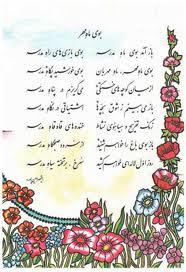 بوی ماه مهر
باز آمد بوی ماه مدرسه
بوی بازی های راه مدرسه
بوی ماه مهر، ماه مهربان
بوی خورشید پگاه مدرسه
از میان کوچه های خستگی
می گریزم در پناه مدرسه
باز می بینم ز شوق بچه ها
اشتیاقی در نگاه مدرسه
زنگ تفریح و هیاهوی نشاط
خنده های قاه قاه مدرسه
باز بوی باغ را خواهم شنید
از سرود صبحگاه مدرسه
روز اول لاله ای خواهم کشید
سرخ، بر تخته سیاه مدرسه